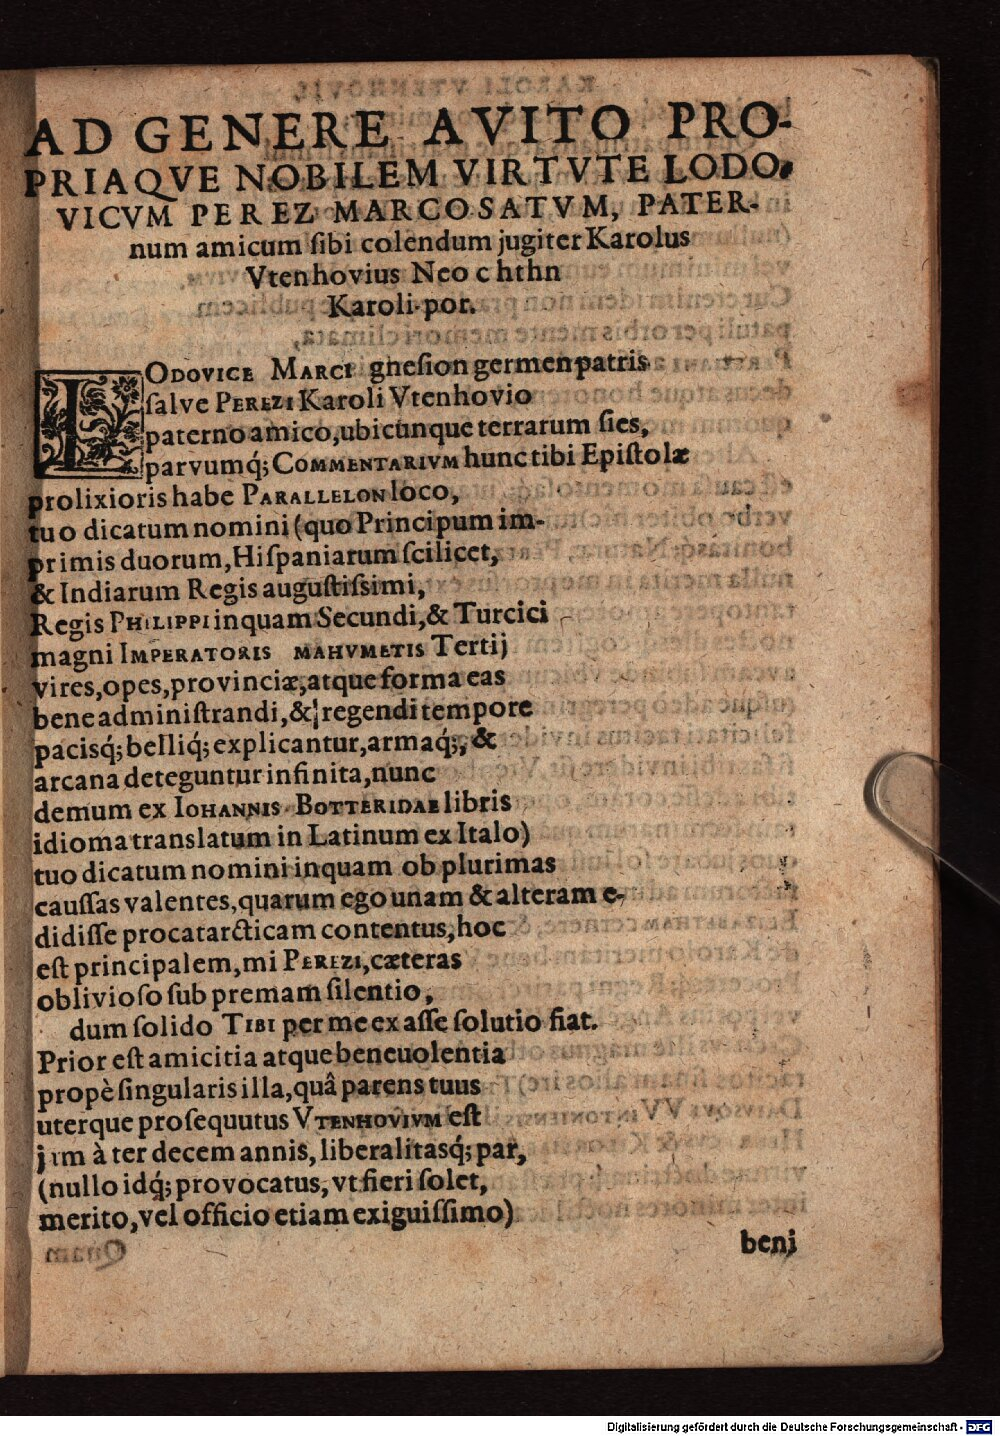 AD GENERE AVITO PRO-
PRIAQVE NOBILEM VIRTVTE LODO-
VICVM PEREZ MARCO SATVM, PATER-
num amicum sibi colendum jugiter Karolus
Vtenhovius Neo chthn
Karoli. por.
LODOVICE MARCI gnesion germen patris
salve PEREZI Karoli Vtenhovio
paterno amico, ubicunque terrarum sies,
parvumq́; COMMENTARIVM hunc tibi Epistolæ
prolixioris habe PARALLELON loco,
tuo dicatum nomini (quo Principum im-
primis duorum, Hispaniarum scilicet,
& Indiarum Regis augustissimi,
Regis PHILIPPI inquam Secundi, & Turcici
magni IMPERATORIS MAHVMETIS Tertij
vires, opes, provinciæ, atque forma eas
bene administrandi, & regendi tempore
pacisq́; belliq́; explicantur, armaq́;, &
arcana deteguntur infinita, nunc
demum ex IOHANNIS BOTTERIDAE libris
idioma translatum in Latinum ex Italo)
tuo dicatum nomini inquam ob plurimas
caussas valentes, quarum ego unam & alteram e-
didisse procatarcticam contentus, hoc
est principalem, mi PEREZI, cæteras
oblivioso sub premam silentio,
dum solido TIBI per me ex asse solutio fiat.
Prior est amicitia atque beneuolentia
propè singularis illa, quâ parens tuus
uterque prosequutus VTENHOVIVM est
jam à ter decem annis, liberalitasq́; par,
(nullo idq́; provocatus, vt fieri solet,
merito, vel officio etiam exiguissimo)
beni
Digitalisierung gefördert durch die Deutsche Forschungsgemeinschaft - DFG